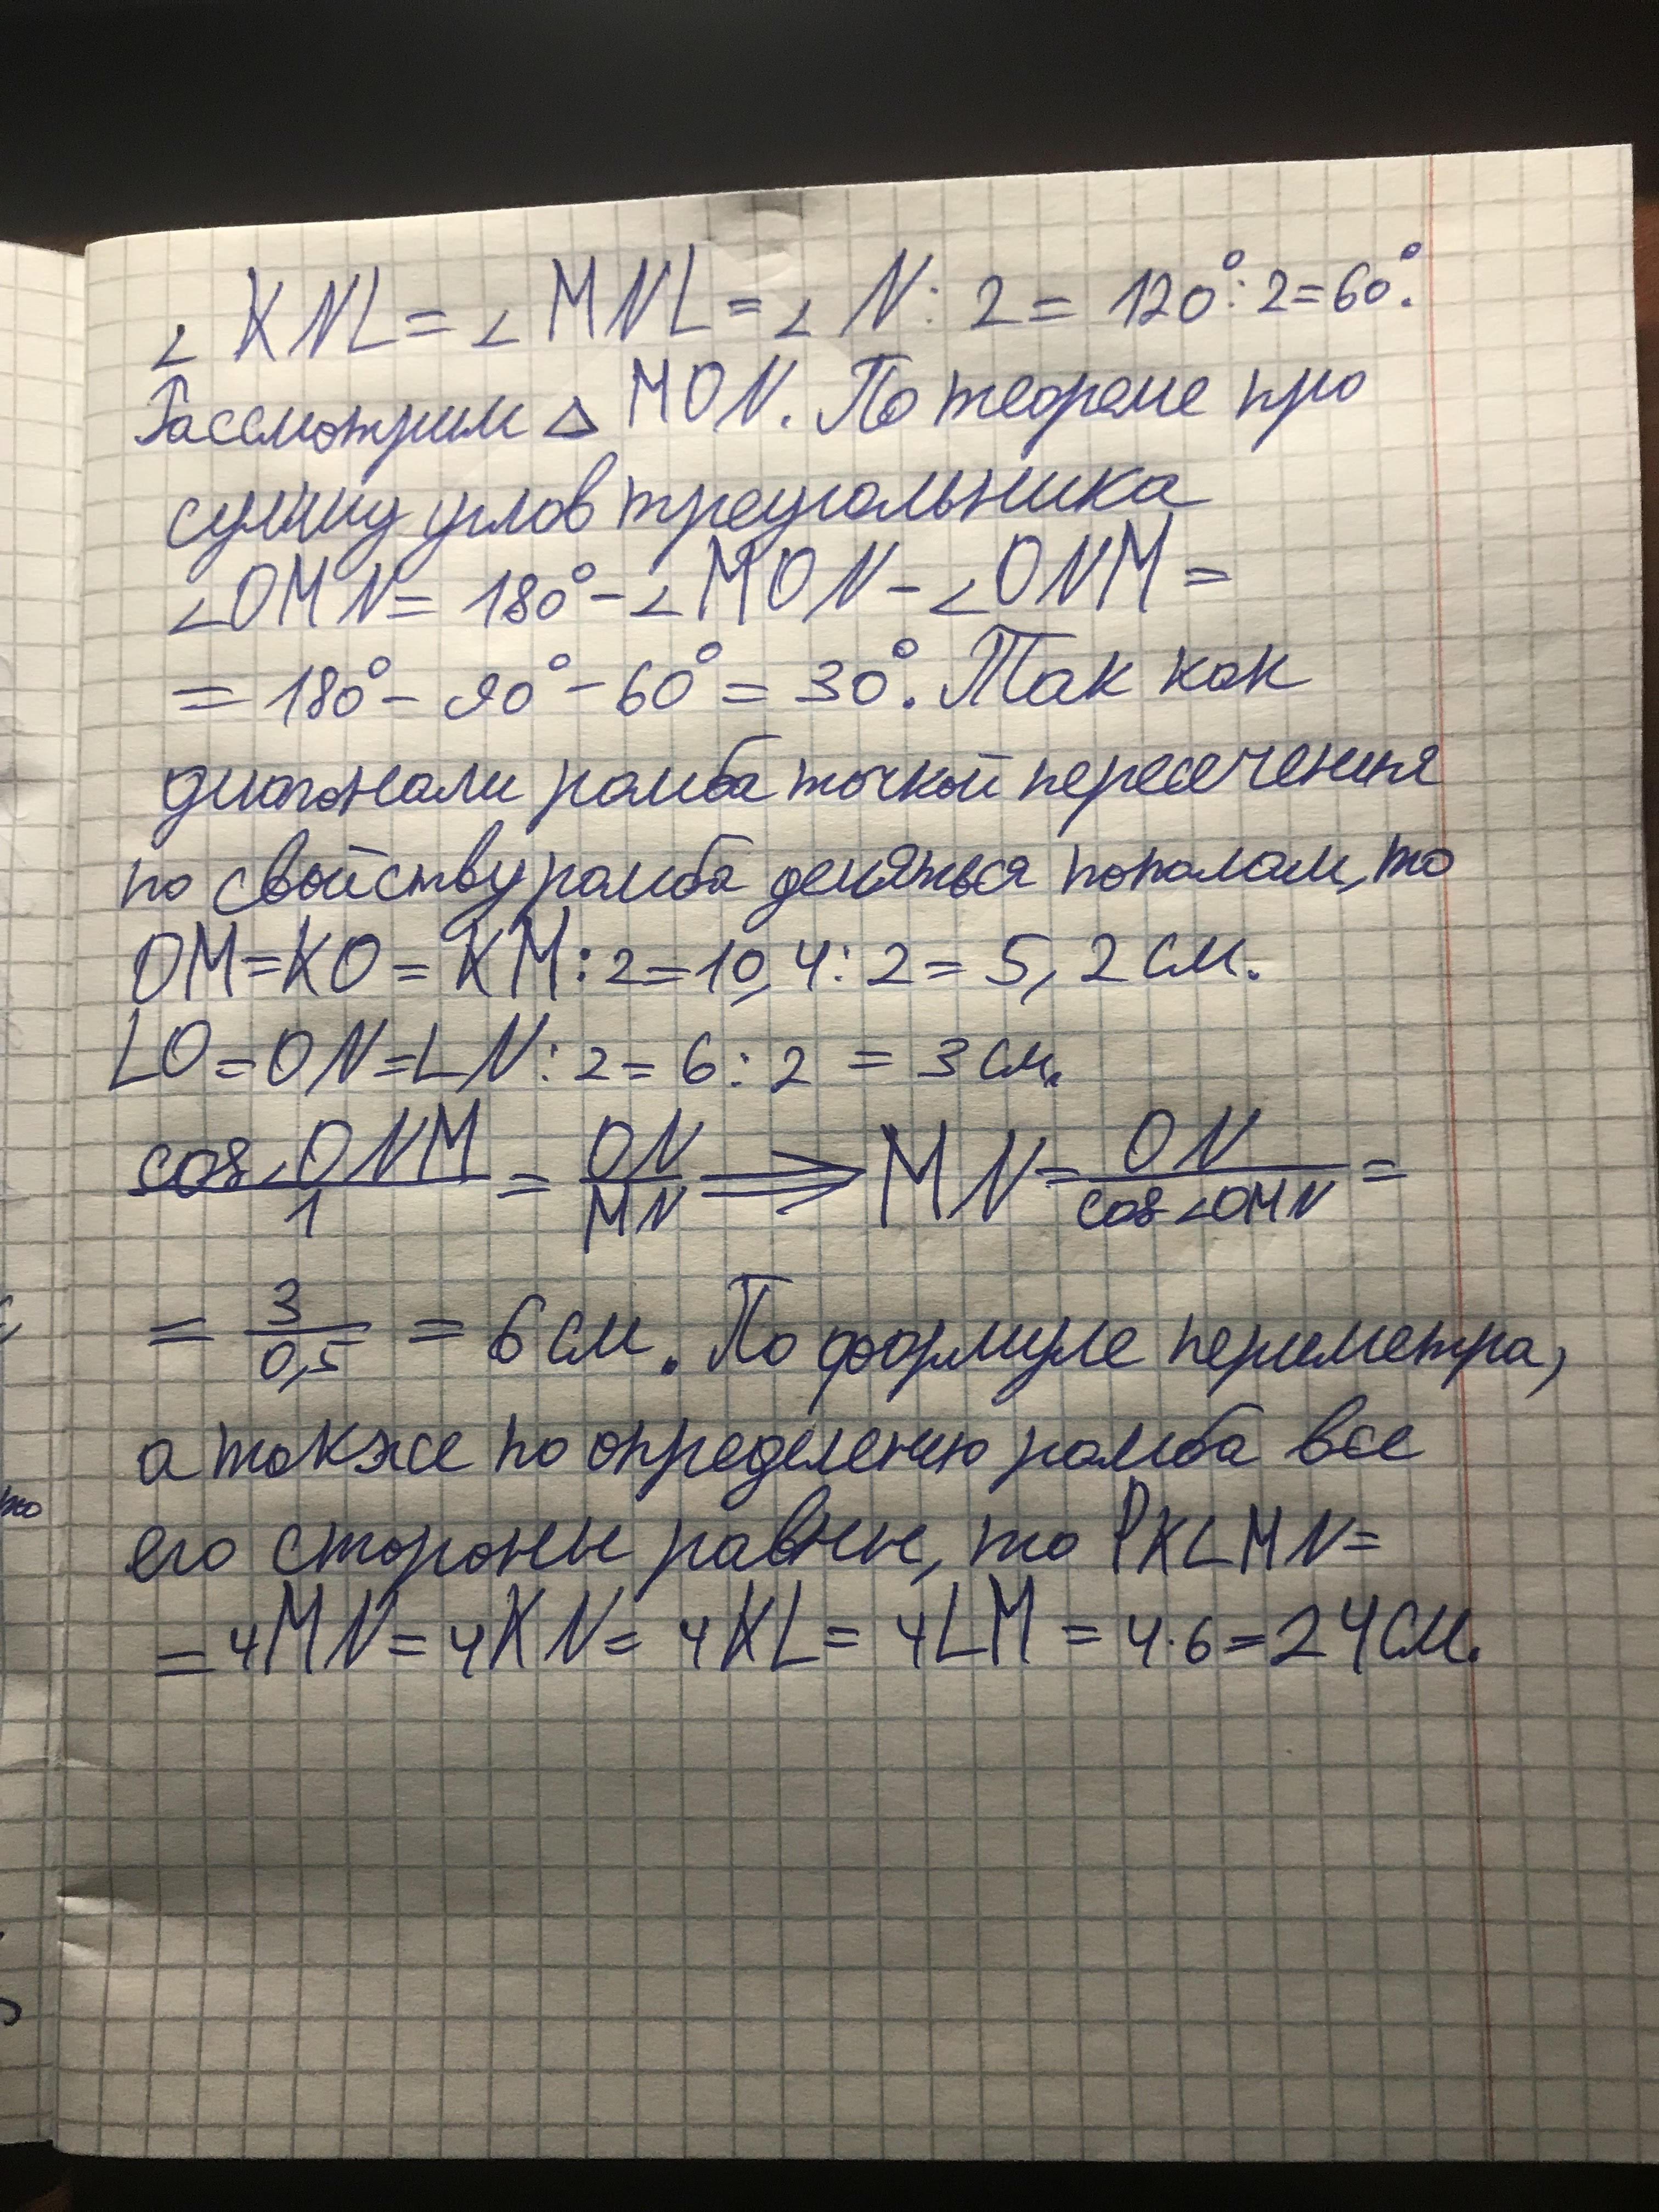 ∠ KNL = ∠ MNL = ∠ N : 2 = 120° : 2 = 60°.
Рассмотрим △ MON. По теореме про
сумму углов треугольника
∠OMN = 180° - ∠MON - ∠ONM =
= 180° - 90° - 60° = 30°. Так как
диагонали ромба точкой пересечения
по свойству ромба деляться пополам, то
OM = KO = KM : 2 = 10,4 : 2 = 5,2 см.
LO = ON = LN : 2 = 6 : 2 = 3 см.
cos∠ONM/1 = ON/MN ⟹ MN = ON/cos∠OMN =
= 3/0,5 = 6 см. По формуле периметра,
а также по определению ромба все
его стороны равны, то PKLMN =
= 4MN = 4KN = 4KL = 4LM = 4·6 = 24 см.